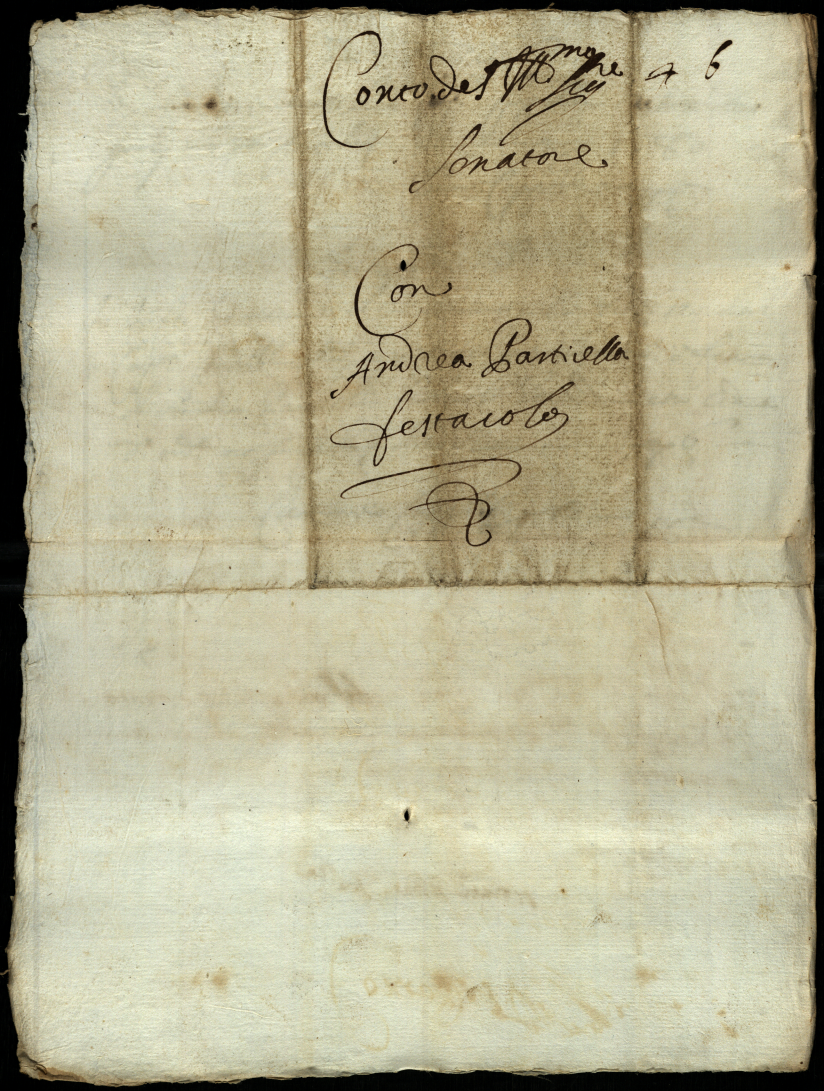 Conto del Ill.mo Sig.re 4 6
Senatore
Con
Andrea Particella
festarolo